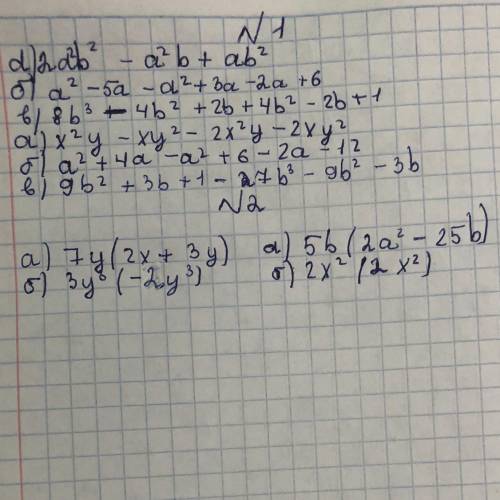 №1
а) 2a²b² - a²b + ab²
б) a² - 5a - a² + 3a - 2a + 6
в) 8b³ - 4b² + 2b + 4b² - 2b + 1
а) x²y - xy² - 2x²y - 2xy²
б) a² + 4a - a² + 6 - 2a - 12
в) 9b² + 3b + 1 - 27b³ - 9b² - 3b
№2
а) 7y(2x + 3y) а) 5b(2a² - 25b)
б) 3y³(-2y³) б) 2x²(2x²)